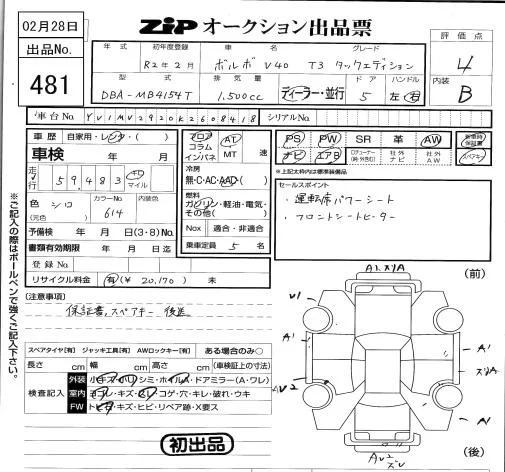 02月28日
ZIP オークション出品票
出品No.
481
評価点
4
内装
B
年式 初年度登録 車名 グレード
R2年2月 ボルボ V40 T3 タックエディション
型式 排気量 ドア ハンドル
DBA-MB4154T 1,500cc ディーラー・並行 5 左・右
車台No. YV1MV2920K2608418 シリアルNo.
車歴 自家用・レンタ・( )
車検 年 月
走行 59,483 km マイル
色 シロ (元色)
カラーNo. 614
内装色
予備検 年 月 日(3・8)No.
書類有効期限 年 月 日迄
登録No.
リサイクル料金 有(¥ 20,170 ) 未
フロア コラム インパネ
AT MT 速
冷房
無・C・AC・AAC・( )
燃料
ガソリン・軽油・電気・その他( )
Nox 適合・非適合
乗車定員 5 名
PS PW SR 革 AW 新車時保証書
ナビ エアB 社外ナビ 社外AW スペアキー
※上記太枠内は標準装備品
セールスポイント
・運転席パワーシート
・フロントシートヒーター
※ご記入の際はボールペンで強くご記入下さい。
(注意事項)
保証書、スペアキー 後送
スペアタイヤ[有] ジャッキ工具[有] AWロックキー[有] ある場合のみ○
長さ cm 幅 cm 高さ cm (車検証上の寸法)
検査記入
外装 小キズ・小ヘコ・シミ・ホイルA・ドアミラー(A・ワレ)
室内 ヨゴレ・キズ・スレ・コゲ・穴・キレ・破れ・ウキ
FW トビ石・キズ・ヒビ・リペア跡・X要ス
初出品
(前)
A1.ズリA
U1
A1
A1
ズリA
U2
A1
AU2
ズレ
(後)